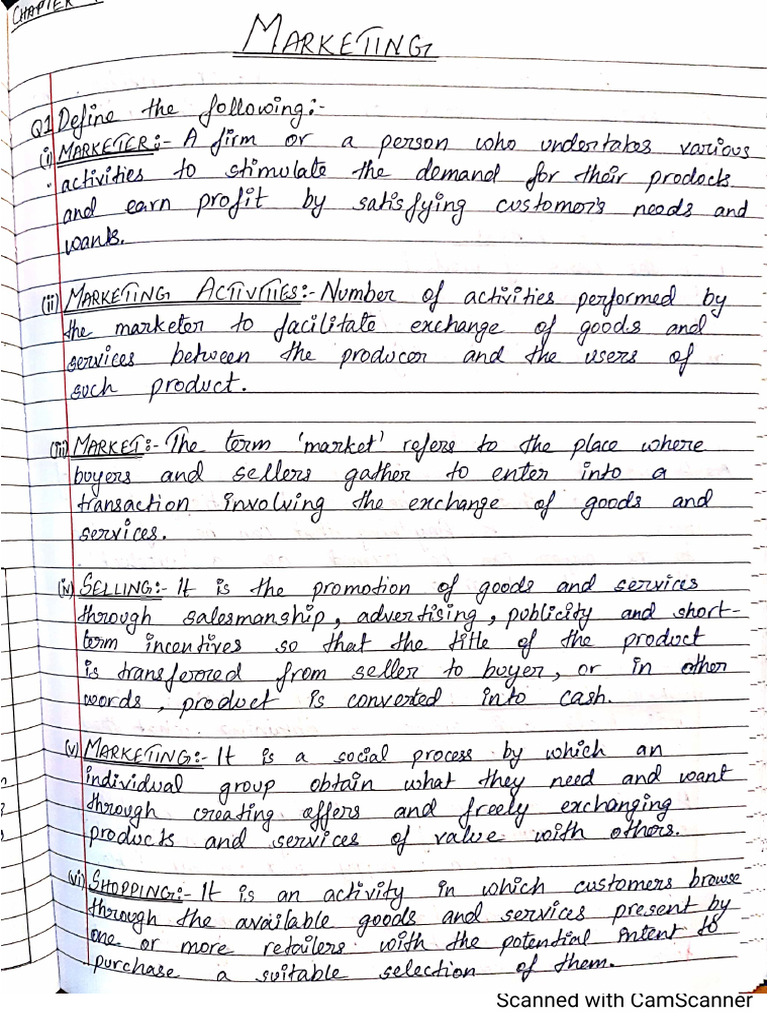 CHAPTER
MARKETING
Q1 Define the following:-
(i) MARKETER:- A firm or a person who undertakes various
activities to stimulate the demand for their products
and earn profit by satisfying customer's needs and
wants.
(ii) MARKETING ACTIVITIES:- Number of activities performed by
the marketer to facilitate exchange of goods and
services between the producer and the users of
such product.
(iii) MARKET:- The term 'market' refers to the place where
buyers and sellers gather to enter into a
transaction involving the exchange of goods and
services.
(iv) SELLING:- It is the promotion of goods and services
through salesmanship, advertising, publicity and short-
term incentives so that the title of the product
is transferred from seller to buyer, or in other
words, product is converted into cash.
(v) MARKETING:- It is a social process by which an
individual group obtain what they need and want
through creating offers and freely exchanging
products and services of value with others.
(vi) SHOPPING:- It is an activity in which customers browse
through the available goods and services present by
one or more retailers with the potential intent to
purchase a suitable selection of them.
Scanned with CamScanner